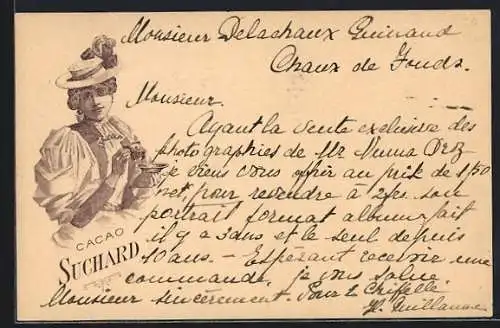 Monsieur Delachaux Guinand
Chaux de Fonds.
Monsieur.
Ayant la vente exclusive des
photographies de Mr Numa Droz
je viens vous offrir au prix de 1/50
net, pour revendre à 2frs. son
portrait format album fait
il y a 3 ans et le seul depuis
10 ans. - Espérant recevoir une
commande, je vous salue
Monsieur sincèrement. Pour
H. Guillaume
CACAO
SUCHARD